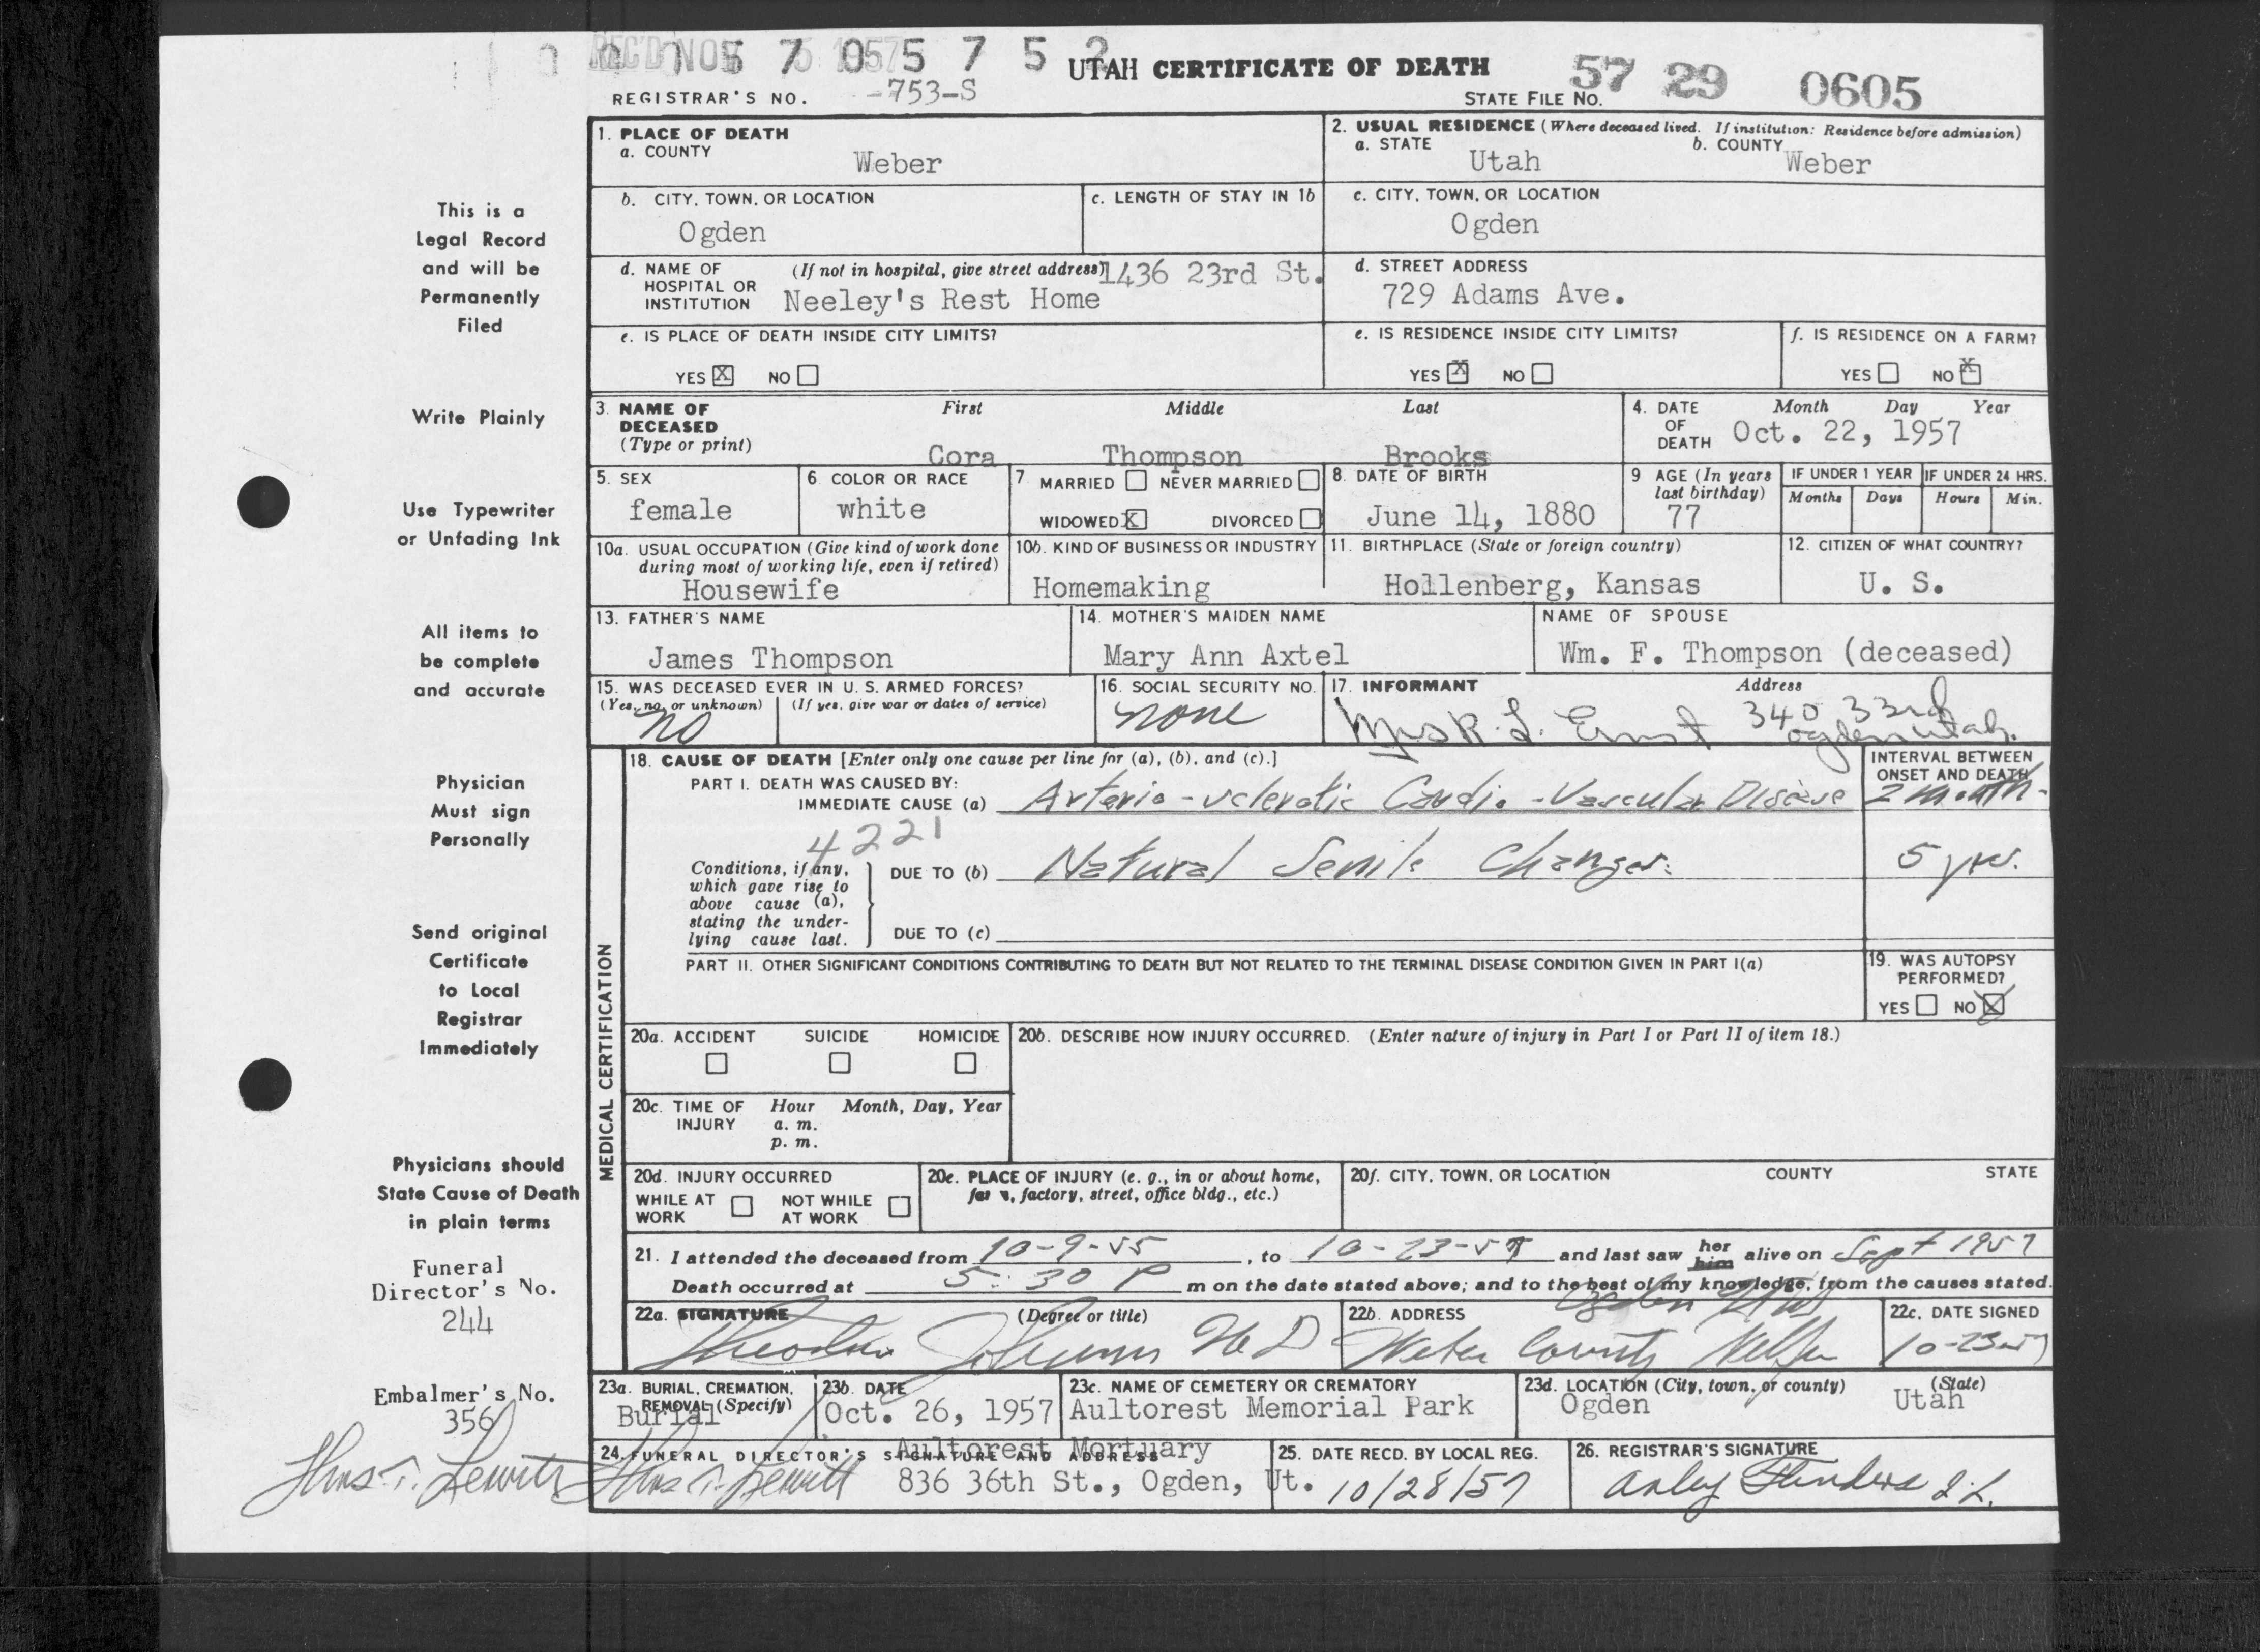 REC'D NOV
0 5 7 0 5 7 5 2 UTAH CERTIFICATE OF DEATH 57 29 0605
REGISTRAR'S NO. -753-S STATE FILE NO.
1. PLACE OF DEATH
a. COUNTY
Weber
2. USUAL RESIDENCE (Where deceased lived. If institution: Residence before admission)
a. STATE b. COUNTY
Utah Weber
b. CITY, TOWN, OR LOCATION
Ogden
c. LENGTH OF STAY IN 1b
c. CITY, TOWN, OR LOCATION
Ogden
d. NAME OF HOSPITAL OR INSTITUTION
(If not in hospital, give street address) 1436 23rd St.
Neeley's Rest Home
d. STREET ADDRESS
729 Adams Ave.
e. IS PLACE OF DEATH INSIDE CITY LIMITS?
YES X NO
e. IS RESIDENCE INSIDE CITY LIMITS?
YES X NO
f. IS RESIDENCE ON A FARM?
YES NO X
3. NAME OF DECEASED
(Type or print)
First Middle Last
Cora Thompson Brooks
4. DATE OF DEATH
Month Day Year
Oct. 22, 1957
5. SEX
female
6. COLOR OR RACE
white
7. MARRIED NEVER MARRIED
WIDOWED X DIVORCED
8. DATE OF BIRTH
June 14, 1880
9 AGE (In years last birthday)
77
IF UNDER 1 YEAR
Months Days
IF UNDER 24 HRS.
Hours Min.
10a. USUAL OCCUPATION (Give kind of work done
during most of working life, even if retired)
Housewife
10b. KIND OF BUSINESS OR INDUSTRY
Homemaking
11. BIRTHPLACE (State or foreign country)
Hollenberg, Kansas
12. CITIZEN OF WHAT COUNTRY?
U. S.
13. FATHER'S NAME
James Thompson
14. MOTHER'S MAIDEN NAME
Mary Ann Axtel
NAME OF SPOUSE
Wm. F. Thompson (deceased)
15. WAS DECEASED EVER IN U. S. ARMED FORCES?
(Yes, no, or unknown) (If yes, give war or dates of service)
no
16. SOCIAL SECURITY NO.
none
17. INFORMANT Address
Mrs R. L. Ernst 340 33rd
Ogden Utah.
MEDICAL CERTIFICATION
18. CAUSE OF DEATH [Enter only one cause per line for (a), (b), and (c).]
INTERVAL BETWEEN
ONSET AND DEATH
PART I. DEATH WAS CAUSED BY:
IMMEDIATE CAUSE (a) Arterio-sclerotic Cardio-Vascular Disease 2 month-
4221
Conditions, if any,
which gave rise to
above cause (a),
stating the under-
lying cause last.
DUE TO (b) Natural Senile Changes. 5 yrs.
DUE TO (c)
PART II. OTHER SIGNIFICANT CONDITIONS CONTRIBUTING TO DEATH BUT NOT RELATED TO THE TERMINAL DISEASE CONDITION GIVEN IN PART I(a)
19. WAS AUTOPSY
PERFORMED?
YES NO X
20a. ACCIDENT SUICIDE HOMICIDE
20b. DESCRIBE HOW INJURY OCCURRED. (Enter nature of injury in Part I or Part II of item 18.)
20c. TIME OF INJURY
Hour Month, Day, Year
a. m.
p. m.
20d. INJURY OCCURRED
WHILE AT WORK NOT WHILE AT WORK
20e. PLACE OF INJURY (e. g., in or about home,
farm, factory, street, office bldg., etc.)
20f. CITY, TOWN, OR LOCATION COUNTY STATE
21. I attended the deceased from 10-9-55, to 10-23-57 and last saw her him alive on Sept 1957
Death occurred at 5:30 P m on the date stated above; and to the best of my knowledge, from the causes stated.
22a. SIGNATURE (Degree or title)
MD
22b. ADDRESS
Ogden Utah
Weber County
22c. DATE SIGNED
10-23-57
23a. BURIAL, CREMATION,
REMOVAL (Specify)
Burial
23b. DATE
Oct. 26, 1957
23c. NAME OF CEMETERY OR CREMATORY
Aultorest Memorial Park
23d. LOCATION (City, town, or county) (State)
Ogden Utah
24. FUNERAL DIRECTOR'S SIGNATURE AND ADDRESS
Aultorest Mortuary
836 36th St., Ogden, Ut.
25. DATE RECD. BY LOCAL REG.
10/28/57
26. REGISTRAR'S SIGNATURE
Arley Flinders
This is a
Legal Record
and will be
Permanently
Filed
Write Plainly
Use Typewriter
or Unfading Ink
All items to
be complete
and accurate
Physician
Must sign
Personally
Send original
Certificate
to Local
Registrar
Immediately
Physicians should
State Cause of Death
in plain terms
Funeral
Director's No.
244
Embalmer's No.
356